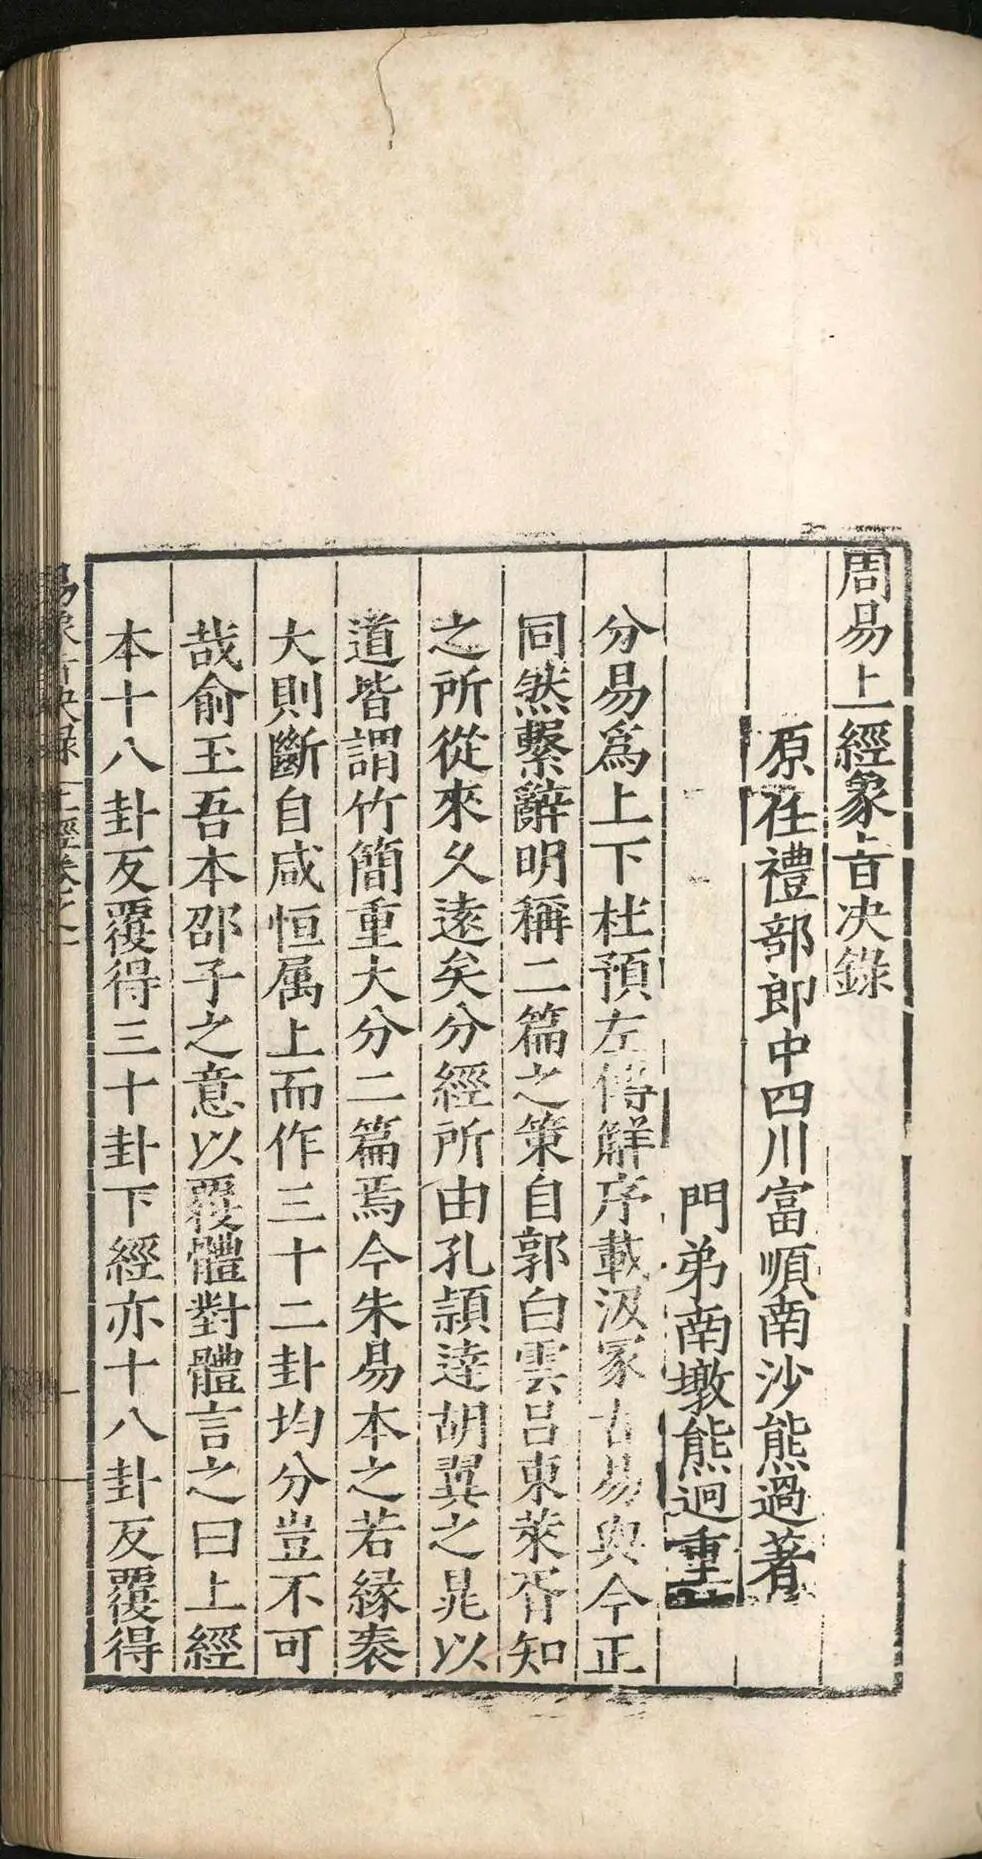 周易上經象旨决錄
原任禮部郎中四川富順南沙熊過著
門弟南墩熊迥重
分易爲上下杜預左傳解序載汲冢古易與今正
同然繫辭明稱二篇之策自郭白雲呂東萊胥知
之所從來久遠矣分經所由孔頴逹胡翼之晁以
道皆謂竹簡重大分二篇焉今朱易本之若緣袠
大則斷自咸恒属上而作三十二卦均分豈不可
哉俞玉吾本邵子之意以覆體對體言之曰上經
本十八卦反覆得三十卦下經亦十八卦反覆得